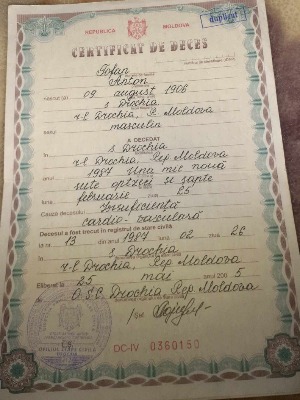 REPUBLICA MOLDOVA
duplicat
CERTIFICAT DE DECES
Gofan
Anton
Născut (ă) 09 august 1906
s. Drochia
r-l Drochia, R. Moldova
masculin
A DECEDAT
s. Drochia
r-l Drochia, Rep. Moldova
1987 Una mie nouă
sute optzeci și șapte
februarie 25
Cauza decesului Insuficiență
cardio-vasculară
Decesul a fost trecut în registrul de stare civilă
la nr. 13 din anul 1987 luna 02 ziua 26
s. Drochia
r-l Drochia, Rep. Moldova
Eliberat la 25 mai anul 2005
O.S.C. Drochia, Rep. Moldova.
DC-IV 0360150